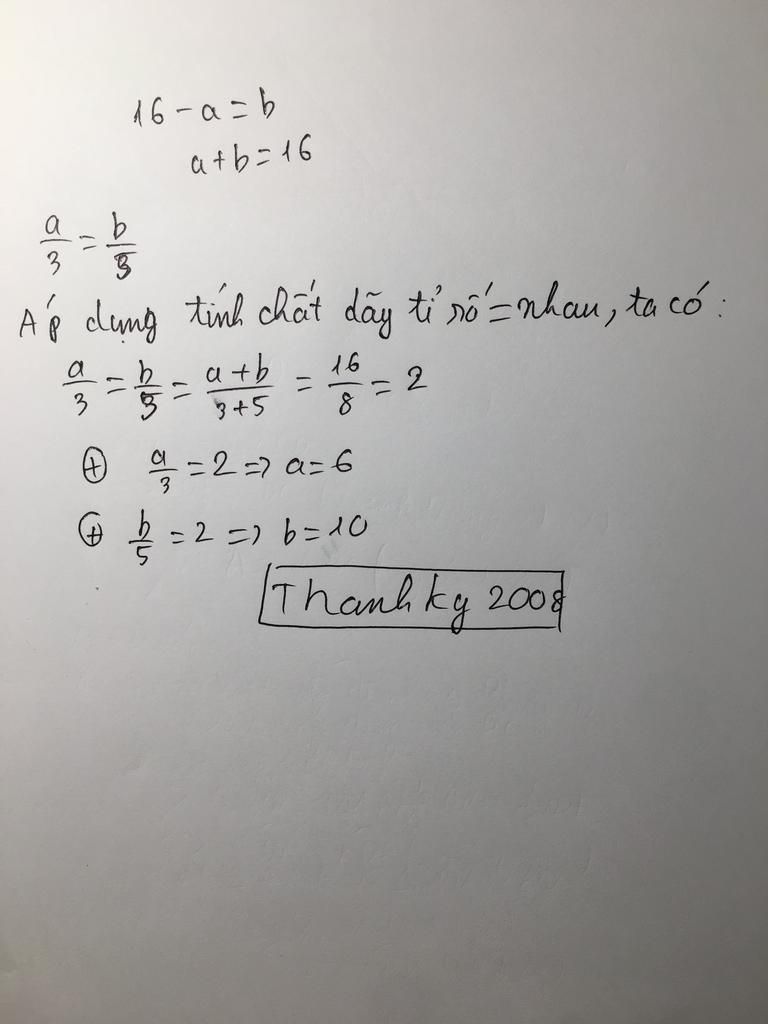 16 - a = b
a + b = 16
a/3 = b/5
Áp dụng tính chất dãy tỉ số = nhau, ta có:
a/3 = b/5 = a+b/3+5 = 16/8 = 2
⊕ a/3 = 2 => a = 6
⊕ b/5 = 2 => b = 10
Thanhky 2008